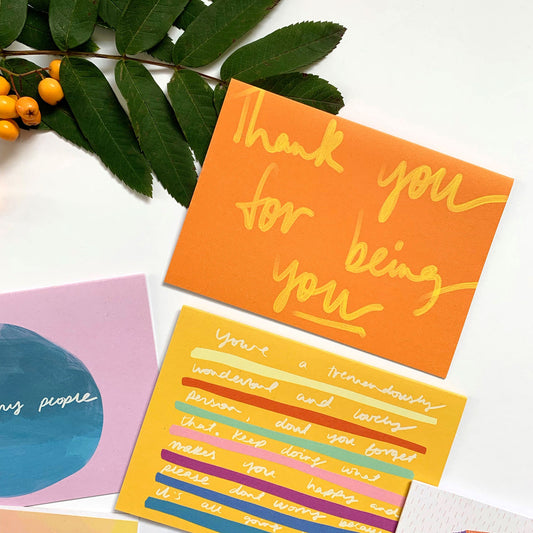 Thank you
for being
you
my people
you're a tremendously
wonderful and lovely
person, dont you forget
that. Keep doing what
makes you happy and
please dont worry because
it's all going